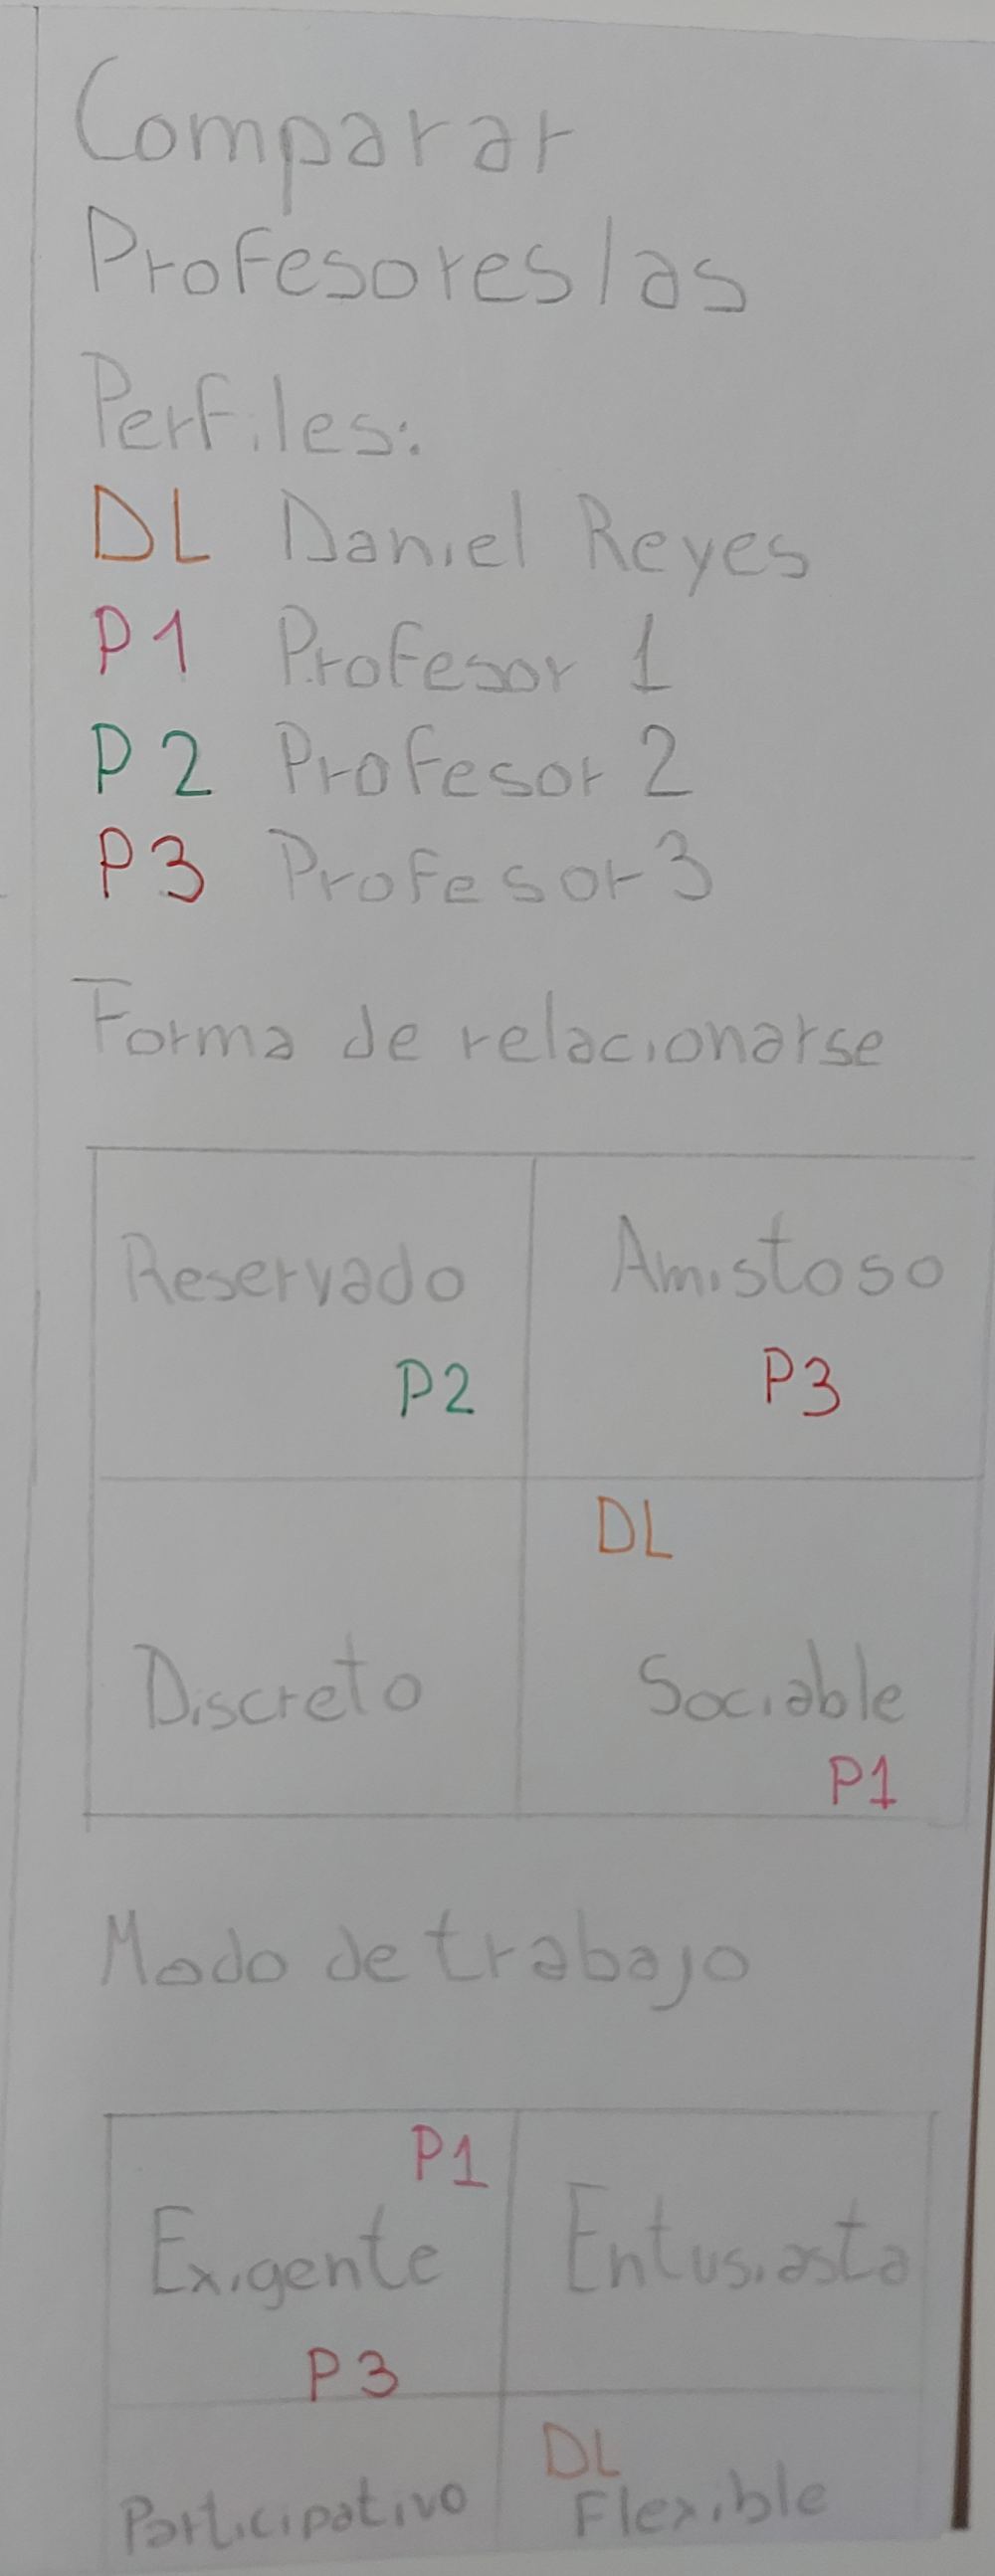 Comparar
Profesores/as
Perfiles:
DL Daniel Reyes
P1 Profesor 1
P2 Profesor 2
P3 Profesor 3
Forma de relacionarse
Reservado Amistoso
P2 P3
DL
Discreto Sociable
P1
Modo de trabajo
P1
Exigente Entusiasta
P3
DL
Participativo Flexible